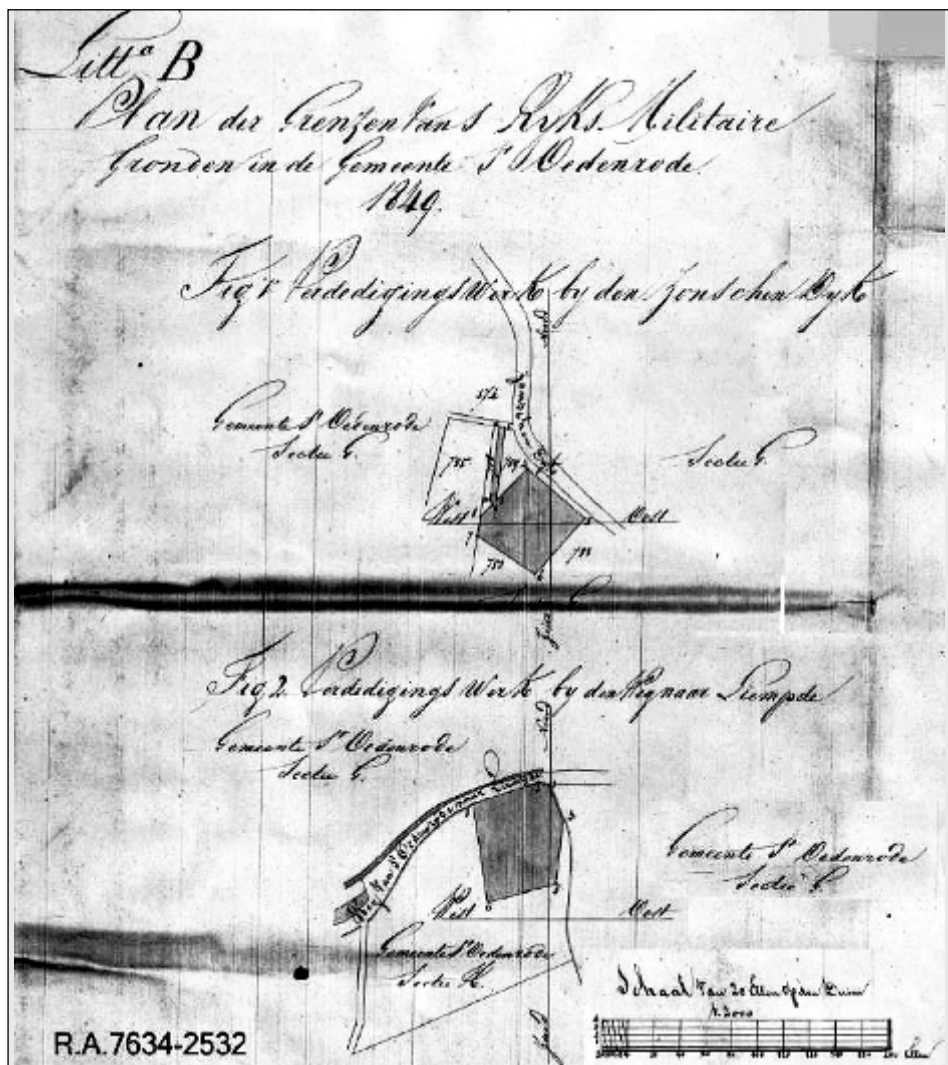 Litt.a B
Plan der Grenzen van S Ryks Militaire
Gronden in de Gemeente St Oedenrode
1849.
Fig 1 Verdedigings Werk by den Zonschen Dyk
Noord
574
Gemeente St Oedenrode
Sectie G.
Sectie G
785
789
West
Oost
7
5
783
788
6
Fig 2. Verdedigings Werk by den Weg naar Liempde
Noord
Gemeente St Oedenrode
Sectie G.
Weg van St Oedenrode naar Liempde
Gemeente St Oedenrode
Sectie G.
West
Oost
Gemeente St Oedenrode
Sectie H.
Schaal van 20 Ellen op den Duim
1:2000
Ellen
R.A.7634-2532